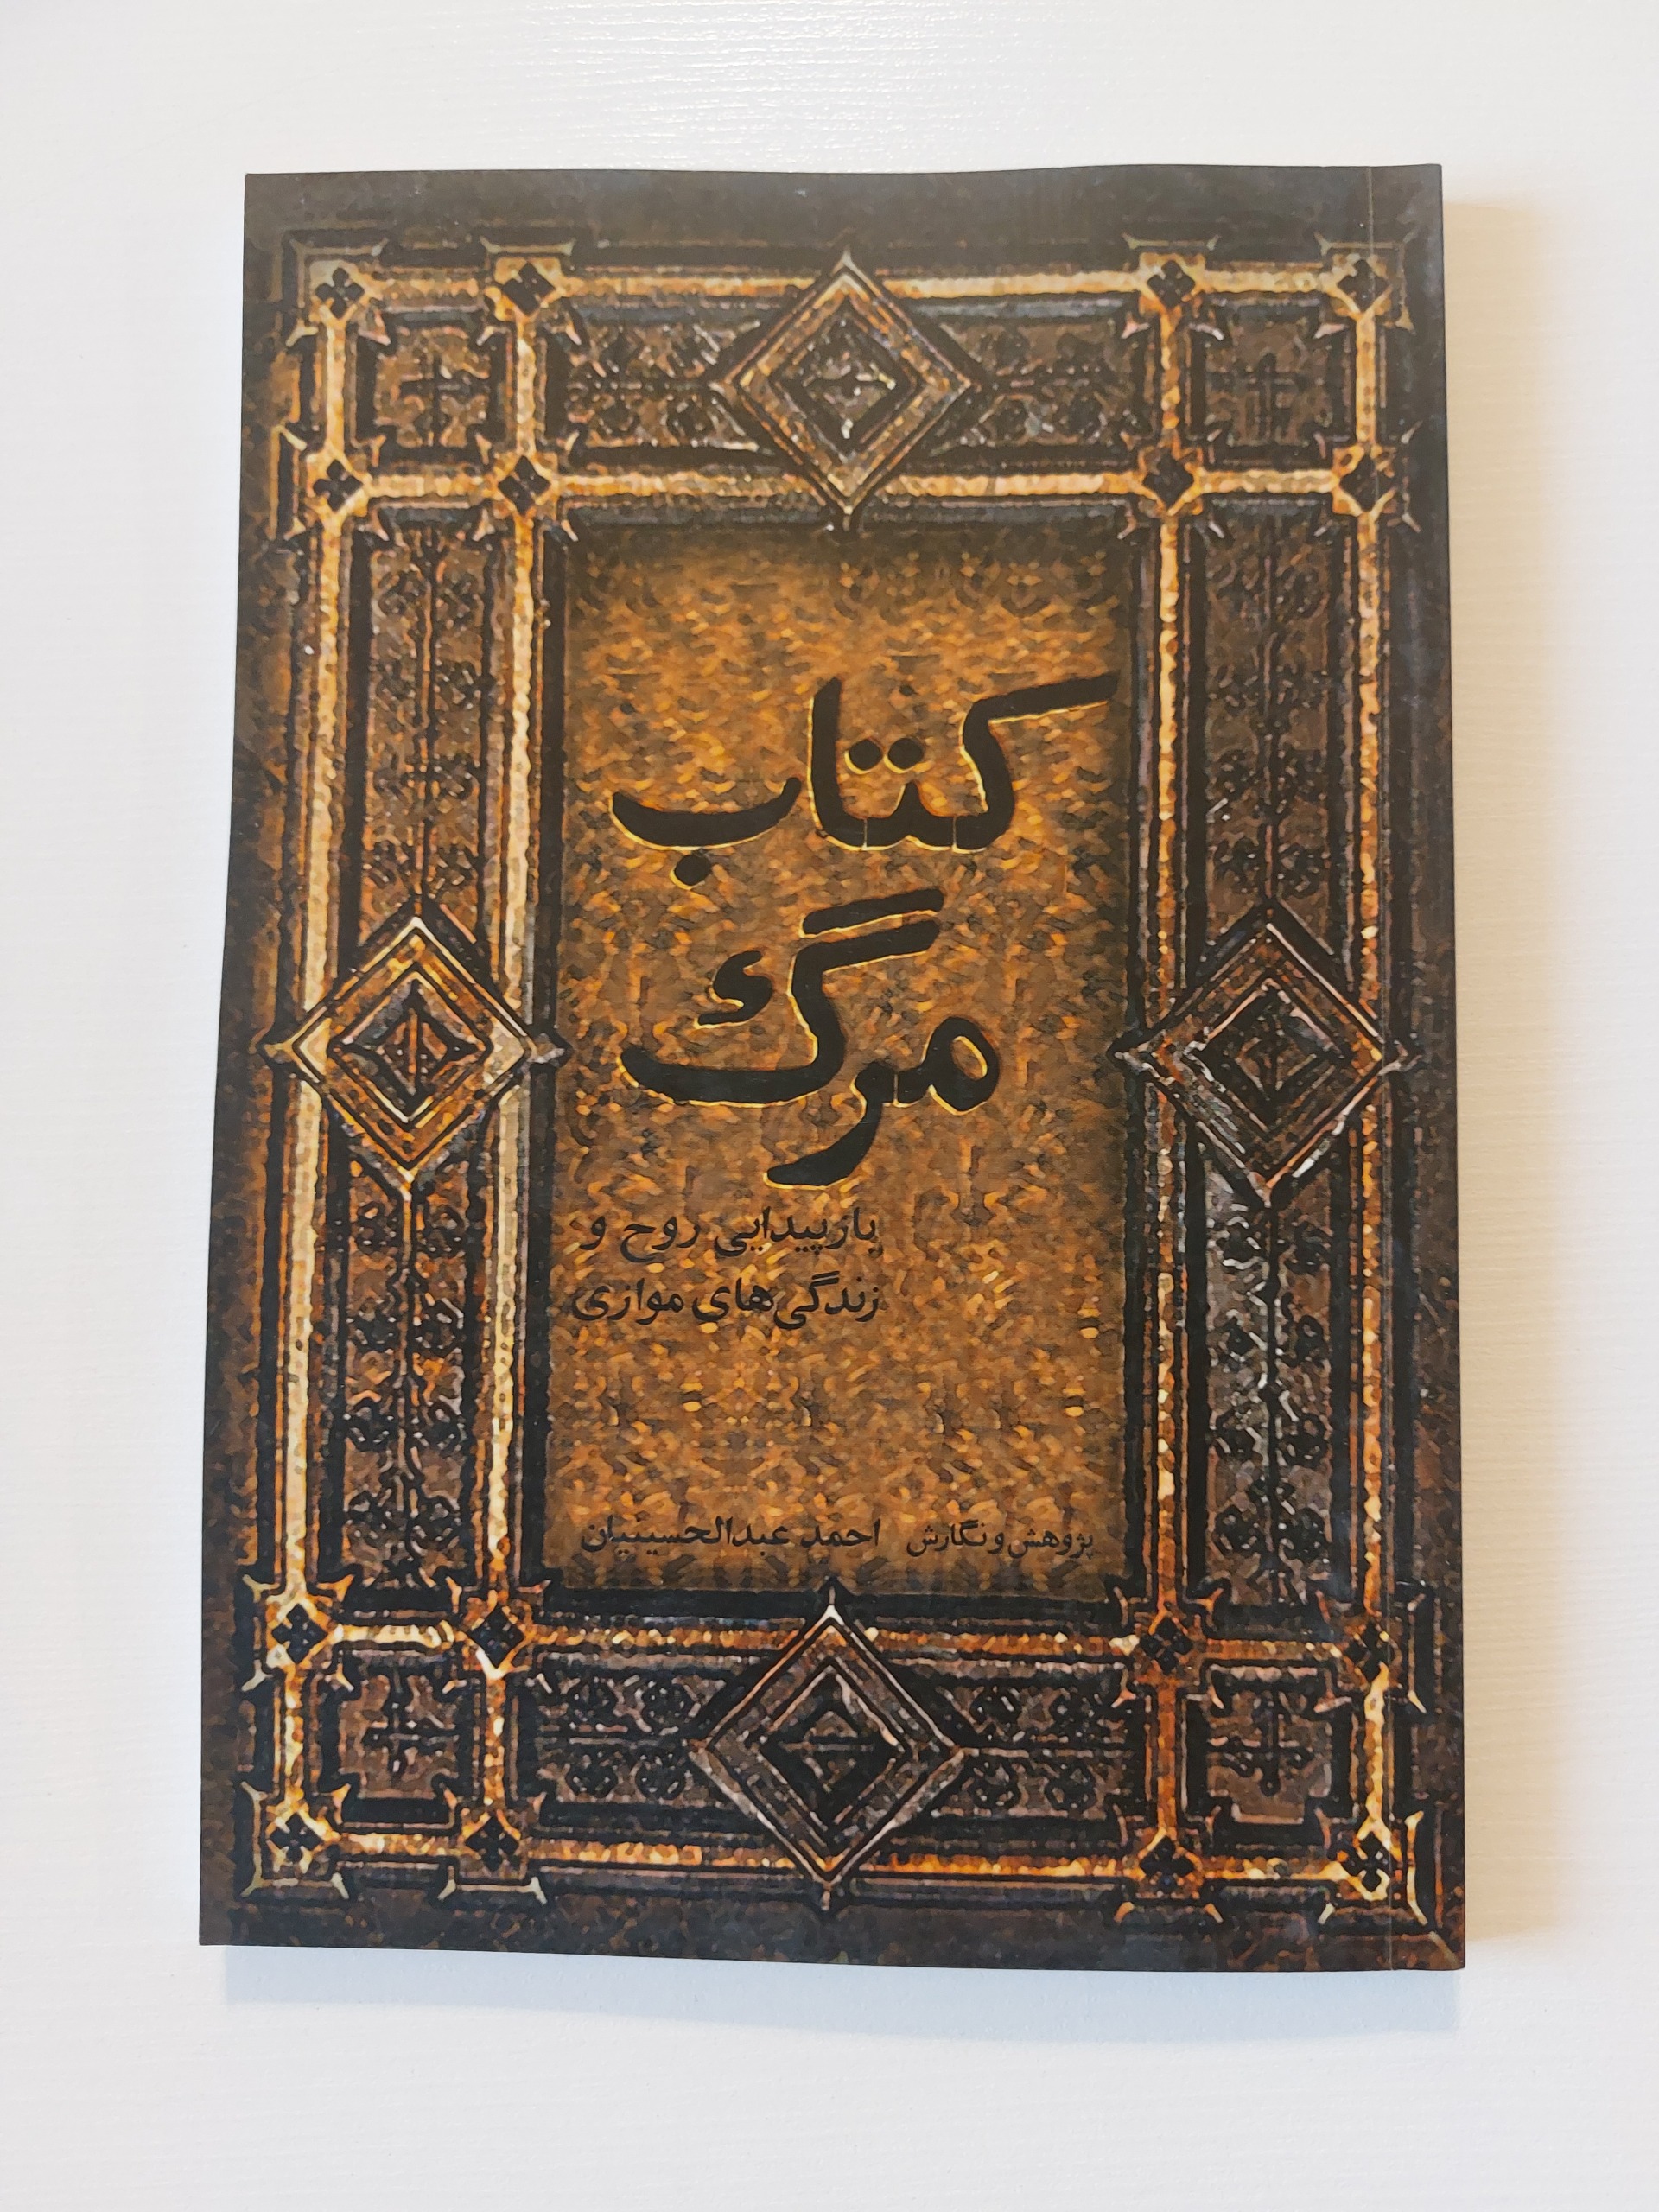 کتاب
مرگ
بازپیدایی روح و
زندگی‌های موازی
پژوهش و نگارش احمد عبدالحسینیان